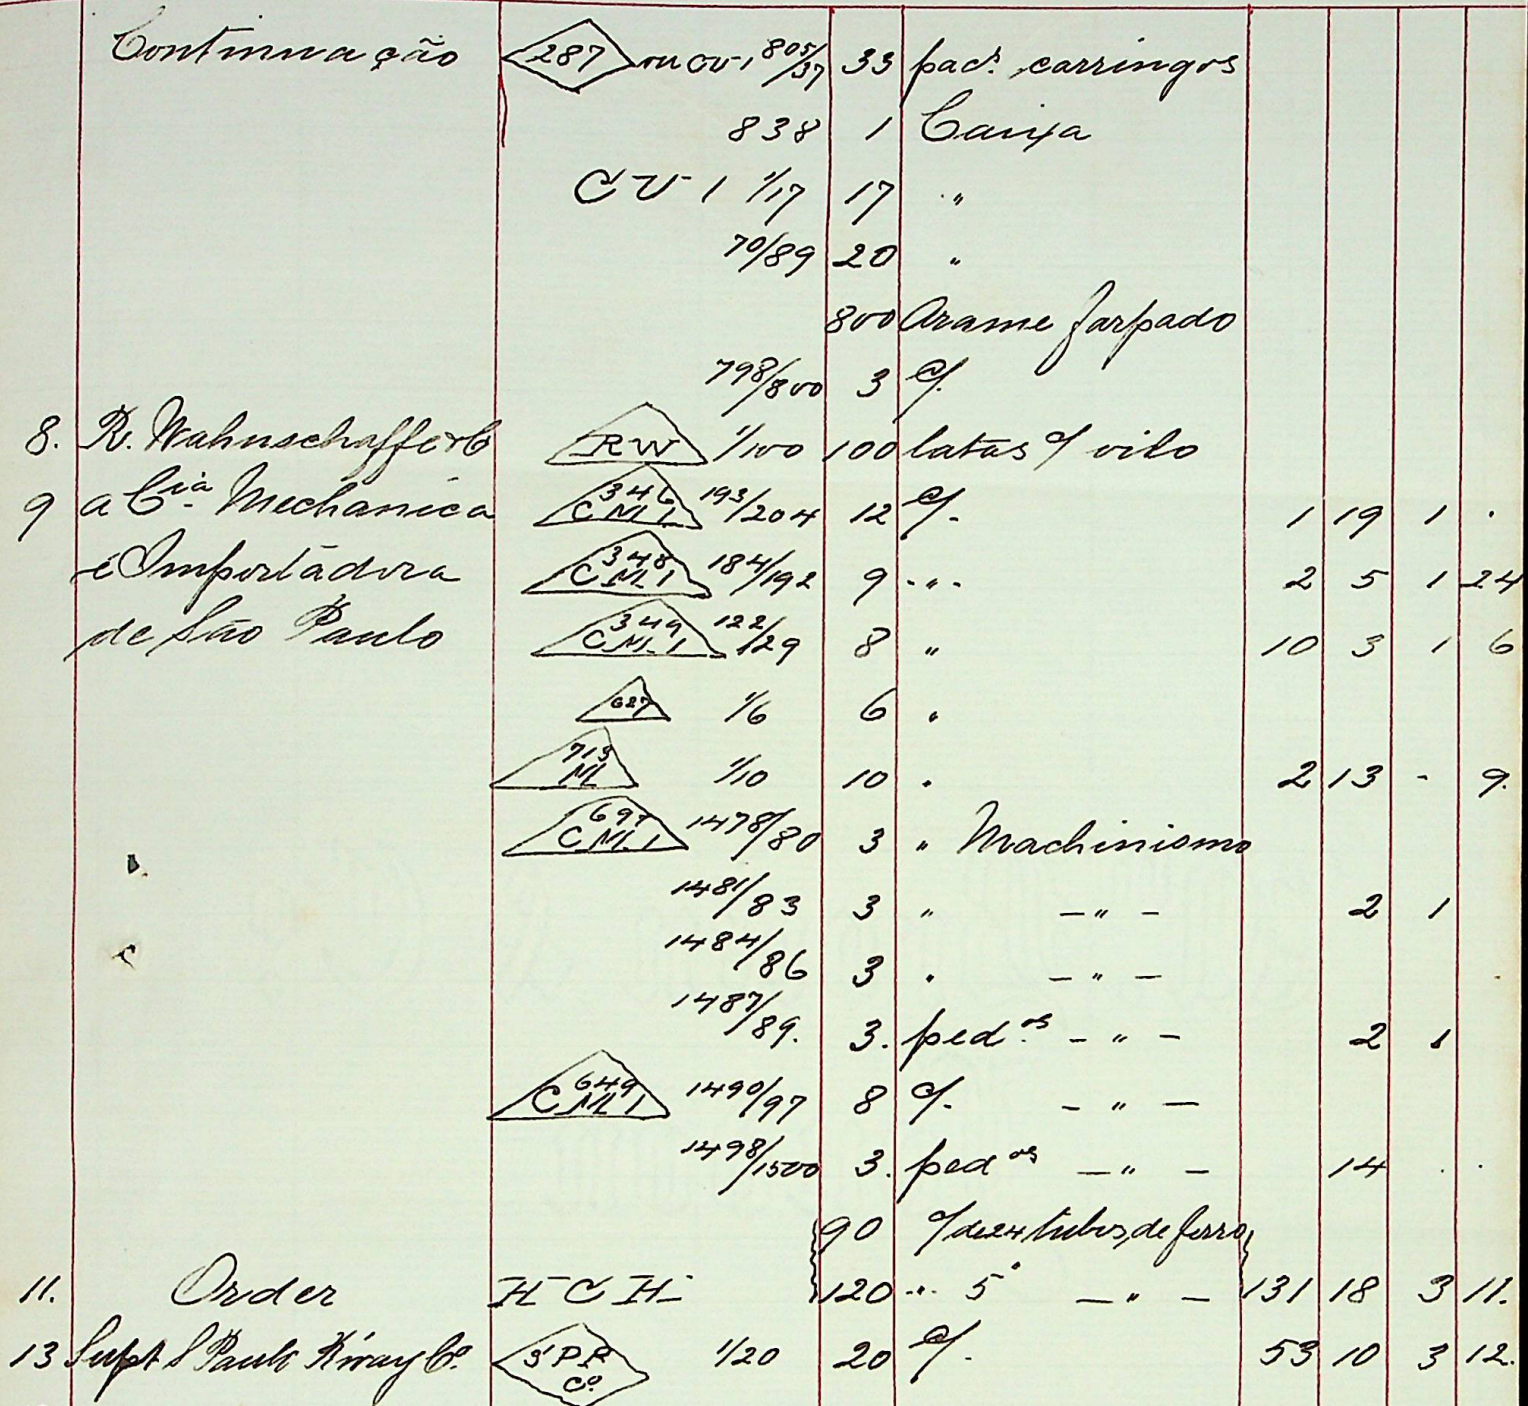 Continuação 287 ou CV 1 805/37 33 pacs. carringos
838 1 Caixa
CV 1 1/17 17 "
70/89 20 "
800 Arame farpado
798/800 3 c/.
8. R. Wahnschaffe & C RW 1/100 100 latas c/ oilo
9 a Cia. Mechanica 346 CMI 193/204 12 c/. 1 19 1 .
e Importàdora 348 CMI 184/192 9 -"- 2 5 1 24
de São Paulo 349 CMI 122/129 8 " 10 3 1 6
627 1/6 6 "
713 M 1/10 10 " 2 13 - 9.
697 CMI 1478/80 3 " Machinismo
1481/83 3 " -"- 2 1
1484/86 3 " -"-
1487/89. 3. pedos -"- 2 1
649 CMI 1490/97 8 c/. -"-
1498/1500 3. pedos -"- 14 . .
90 c/ de 24 tubos, de ferro
11. Order HCH 120 -"- 5 -"- 131 18 3 11.
13 Supt S Paulo R'way Co. SPR Co 1/20 20 c/. 53 10 3 12.